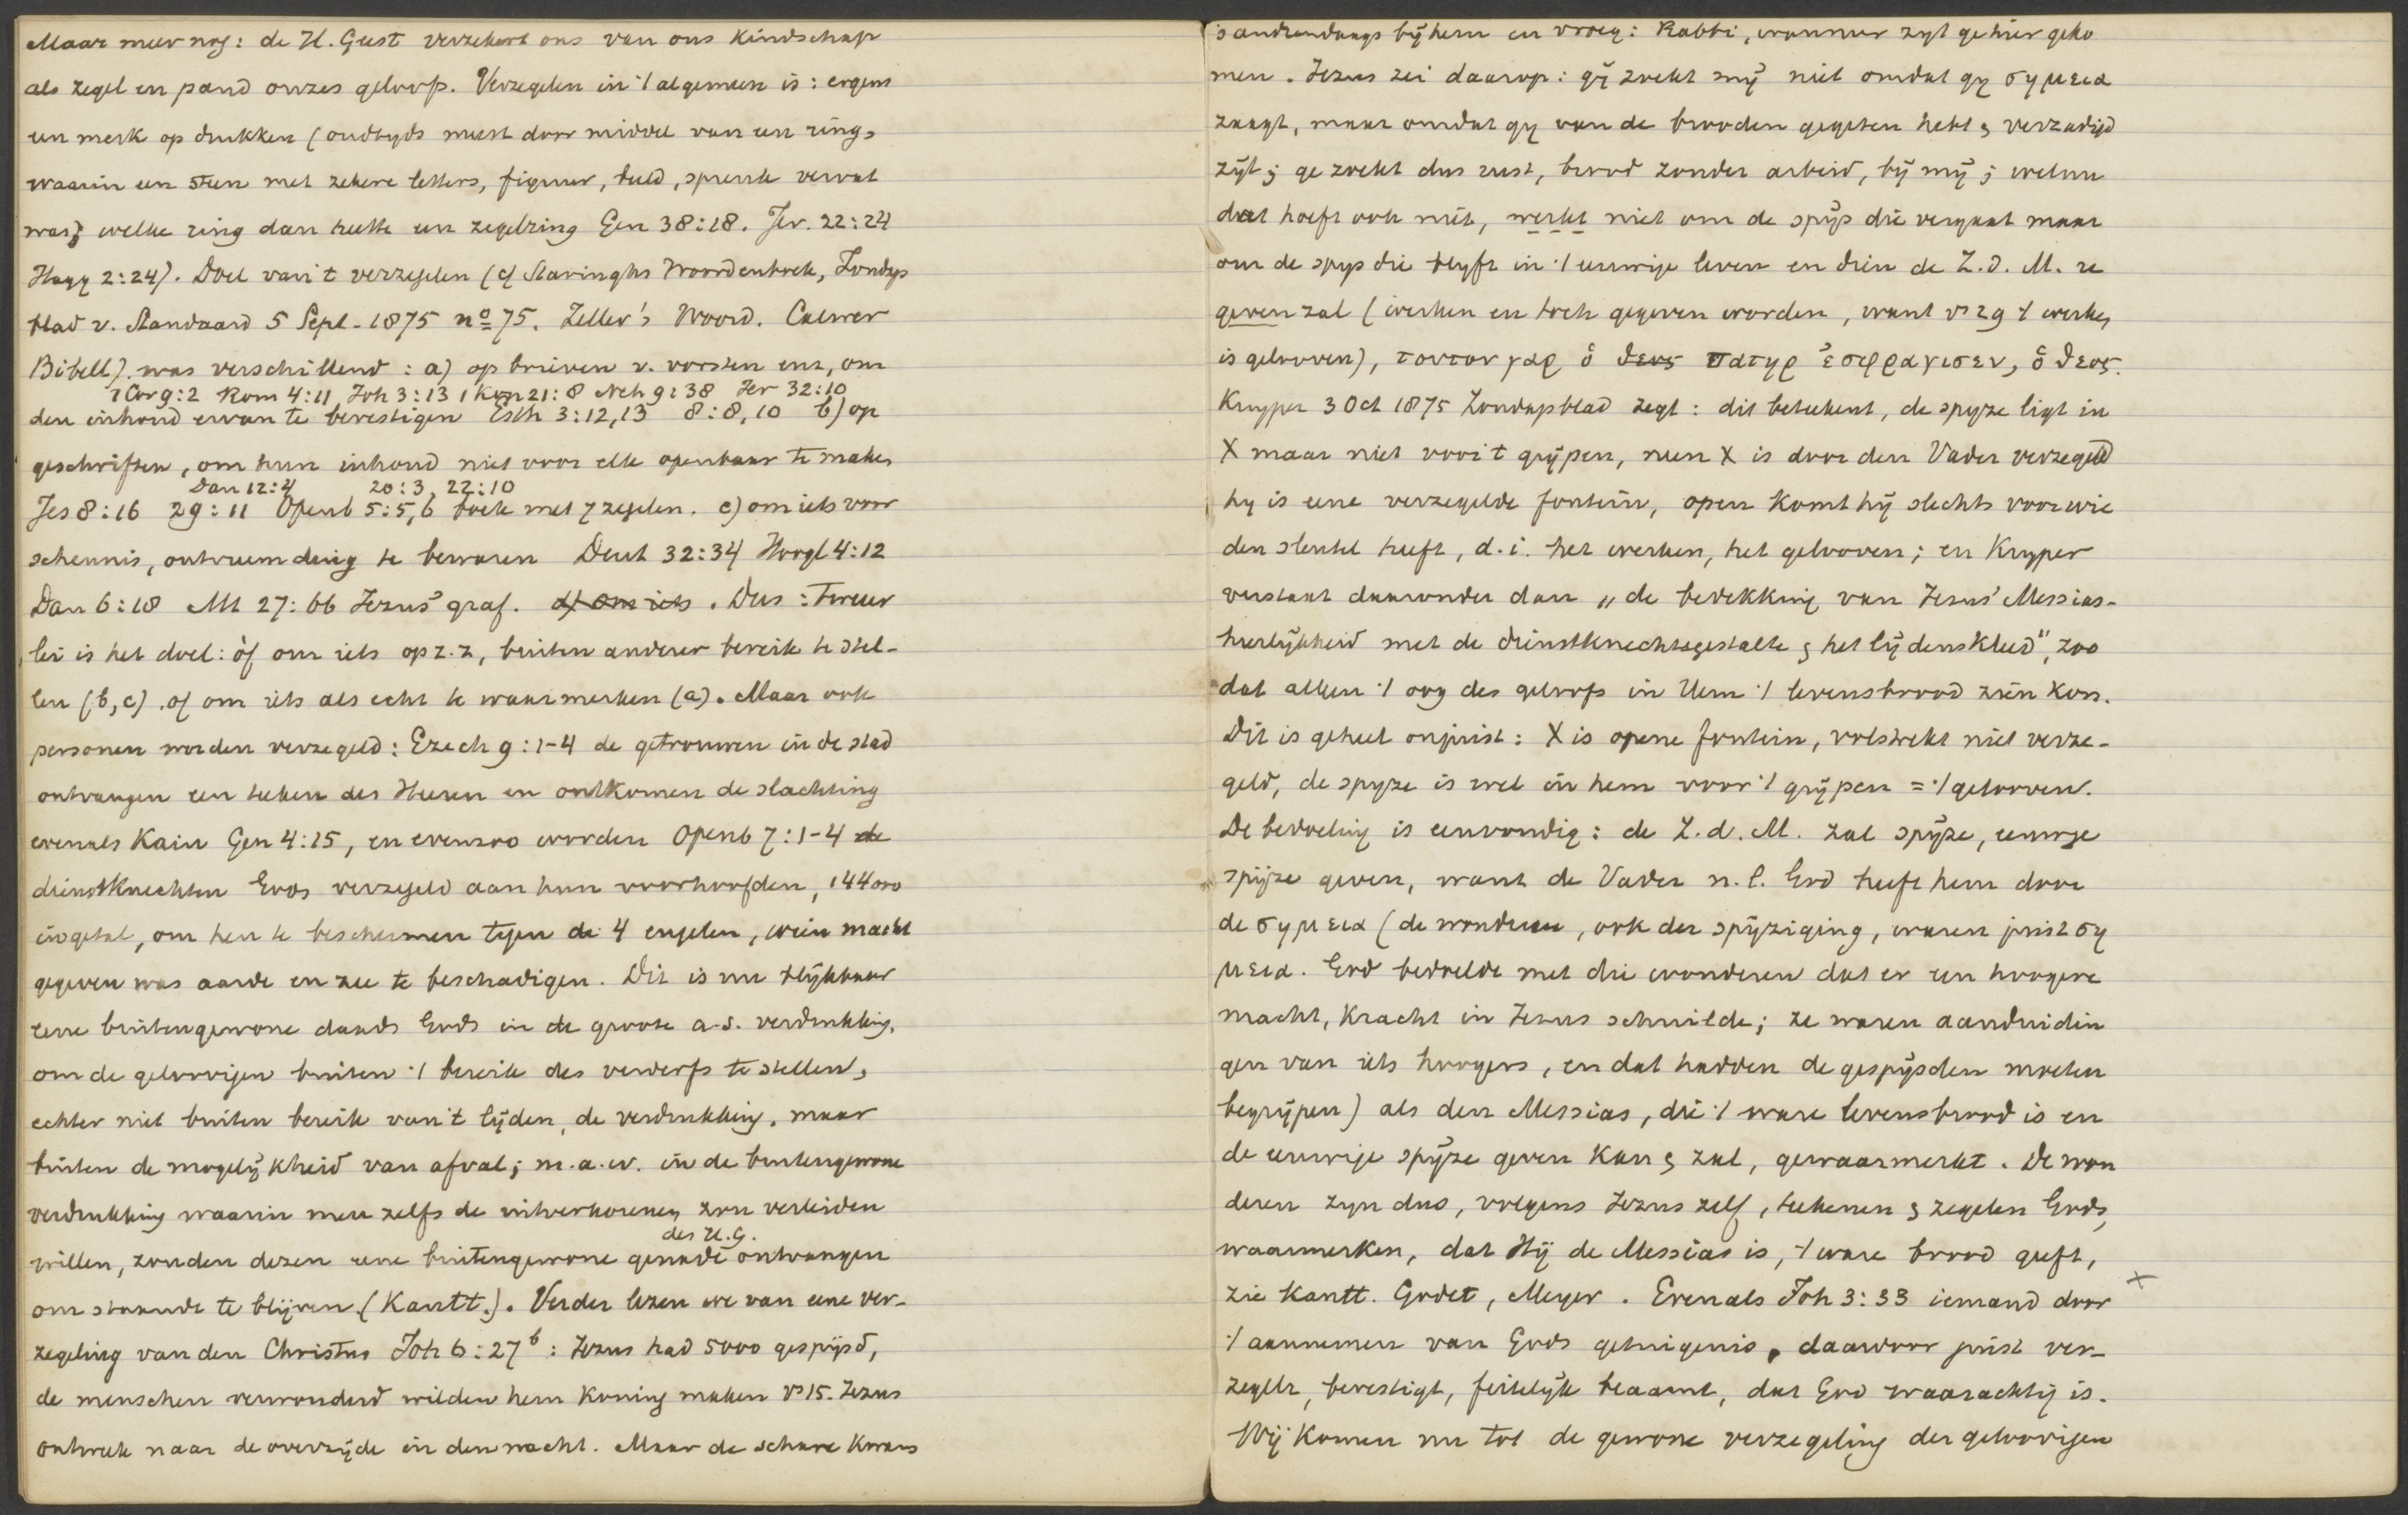 Maar meer nog: de H. Geest verzekert ons van ons kindschap
als zegel en pand onzes geloofs. Verzegelen in 't algemeen is: ergens
een merk op drukken (oudtyds meest door middel van een ring,
waarin een steen met zekere letters, figuur, beeld, spreuk vervat
was; welke ring dan heette een zegelring Gen 38:18. Jer. 22:24
Hagg 2:24). Doel van 't verzegelen (cf Staringhs Woordenboek, Zondags
blad v. Standaard 5 Sept. 1875 no 75. Zeller's Woord. Calwer
Bibell). was verschillend: a) op brieven v. vorsten enz, om
1 Cor 9:2 Rom 4:11 Joh 3:13 1 Kon 21:8 Neh 9:38 Jer 32:10
den inhoud ervan te bevestigen Esth 3:12,13 8:8,10 b) op
geschriften, om hun inhoud niet voor elk openbaar te maken
Dan 12:4 20:3, 22:10
Jes 8:16 29:11 Openb 5:5,6 boek met 7 zegelen. c) om iets voor
schennis, ontvreemding te bewaren Deut 32:34 Hoogl 4:12
Dan 6:18 Mt 27:66 Jezus' graf. d) om iets. Dus: tweeër
lei is het doel: òf om iets op z.z, buiten anderer bereik te stel-
len (b, c). of om iets als echt te waarmerken (a). Maar ook
personen worden verzegeld: Ezech 9:1-4 de getrouwen in de stad
ontvangen een teeken des Heeren en ontkomen de slachting
evenals Kain Gen 4:15, en evenzoo worden Openb 7:1-4 de
dienstknechten Gods verzegeld aan hun voorhoofden, 144000
in getal, om hen te beschermen tegen de 4 engelen, wien macht
gegeven was aarde en zee te beschadigen. Dit is nu blijkbaar
eene buitengewone daad Gods in de groote a.s. verdrukking,
om de geloovigen buiten 't bereik des verderfs te stellen,
echter niet buiten bereik van 't lijden, de verdrukking, maar
buiten de mogelijkheid van afval; m.a.w. in de buitengewone
verdrukking waarin men zelfs de uitverkorenen zou verleiden
des H.G.
willen, zouden dezen eene buitengewone genade ontvangen
om staande te blijven. (Kantt.). Verder lezen we van eene ver-
zegeling van den Christus Joh 6:27b: Jezus had 5000 gespijsd,
de menschen verwonderd wilden hem Koning maken vs 15. Jezus
ontweek naar de overzijde in den nacht. Maar de schare kwam
's anderendaags bij hem en vroeg: Rabbi, wanneer zyt ge hier geko
men. Jezus zei daarop: gij zoekt mij niet omdat gy σημεια
zaagt, maar omdat gy van de brooden gegeten hebt & verzadigd
zijt; ge zoekt dus rust, brood zonder arbeid, bij mij; welnu
dat hoeft ook niet, werkt niet om de spijs die vergaat maar
om de spys die blyft in 't eeuwige leven en dien de Z.d.M. ze
geven zal (werken en toch gegeven worden, want vs 29 't werken
is gelooven), τουτον γαρ ὁ θεος πατηρ ἐσφραγισεν, ὁ θεος.
Kuyper 3 Oct 1875 Zondagsblad zegt: dit beteekent, de spyze ligt in
X maar niet voor 't grijpen, neen X is door den Vader verzegeld
hy is eene verzegelde fontein, open komt hij slechts voor wie
den sleutel heeft, d.i. het werken, het gelooven; en Kuyper
verstaat daaronder dan „de bedekking van Jezus' Messias-
heerlijkheid met de dienstknechtsgestalte & het lijdenskleed", zoo
dat alleen 't oog des geloofs in Hem 't levensbrood zien kon.
Dit is geheel onjuist: X is opene fontein, volstrekt niet verze-
geld, de spyze is wel in hem voor 't grijpen = 't gelooven.
De bedoeling is eenvoudig: de Z.d.M. zal spijze, eeuwige
spijze geven, want de Vader n.l. God heeft hem door
de σημεια (de wonderen, ook der spijziging, waren juist ση
μεια. God bedoelde met die wonderen dat er een hoogere
macht, kracht in Jezus schuilde; ze waren aanduidin
gen van iets hoogers, en dat hadden de gespijsden moeten
begrijpen) als den Messias, die 't ware levensbrood is en
de eeuwige spijze geven kan & zal, gewaarmerkt. De won
deren zyn dus, volgens Jezus zelf, teekenen & zegelen Gods,
waarmerken, dat Hij de Messias is, 't ware brood geeft,
zie Kantt. Godet, Meyer. Evenals Joh 3:33 iemand door ×
't aannemen van Gods getuigenis, daardoor juist ver-
zegelt, bevestigt, feitelijk beaamt, dat God waarachtig is.
Wij komen nu tot de gewone verzegeling der geloovigen